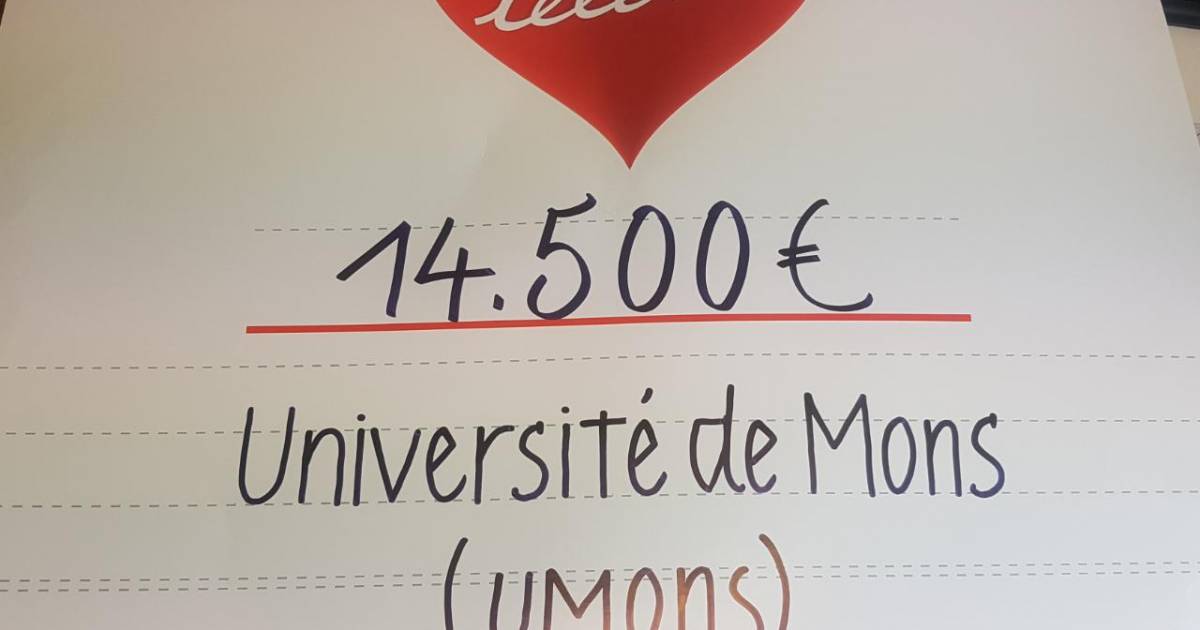 14.500€
Université de Mons
(UMons)